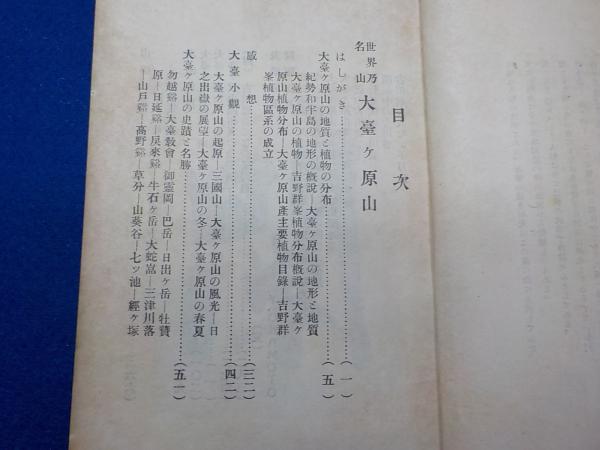 目次
世界乃名山 大臺ヶ原山
はしがき……(一)
大臺ヶ原山の地質と植物の分布……(五)
紀勢和半島の地形の概說―大臺ヶ原山の地形と地質
大臺ヶ原山の植物―吉野群峯植物分布概說―大臺ヶ
原山植物分布―大臺ヶ原山產主要植物目錄―吉野群
峯植物區系の成立
感想……(三二)
大臺小觀……(四二)
大臺ヶ原山の起原―三國山―大臺ヶ原山の風光―日
之出嶽の展望―大臺ヶ原山の冬―大臺ヶ原山の春夏
大臺ヶ原山の史蹟と名勝……(五一)
勿越谿―大臺敎會―御靈岡―巴岳―日出ヶ岳―牡蠣
原―日延谿―戾來谿―牛石ヶ岳―大蛇嵓―三津川落
―山戶谿―高野谿―草分―山葵谷―七ッ池―經ヶ塚